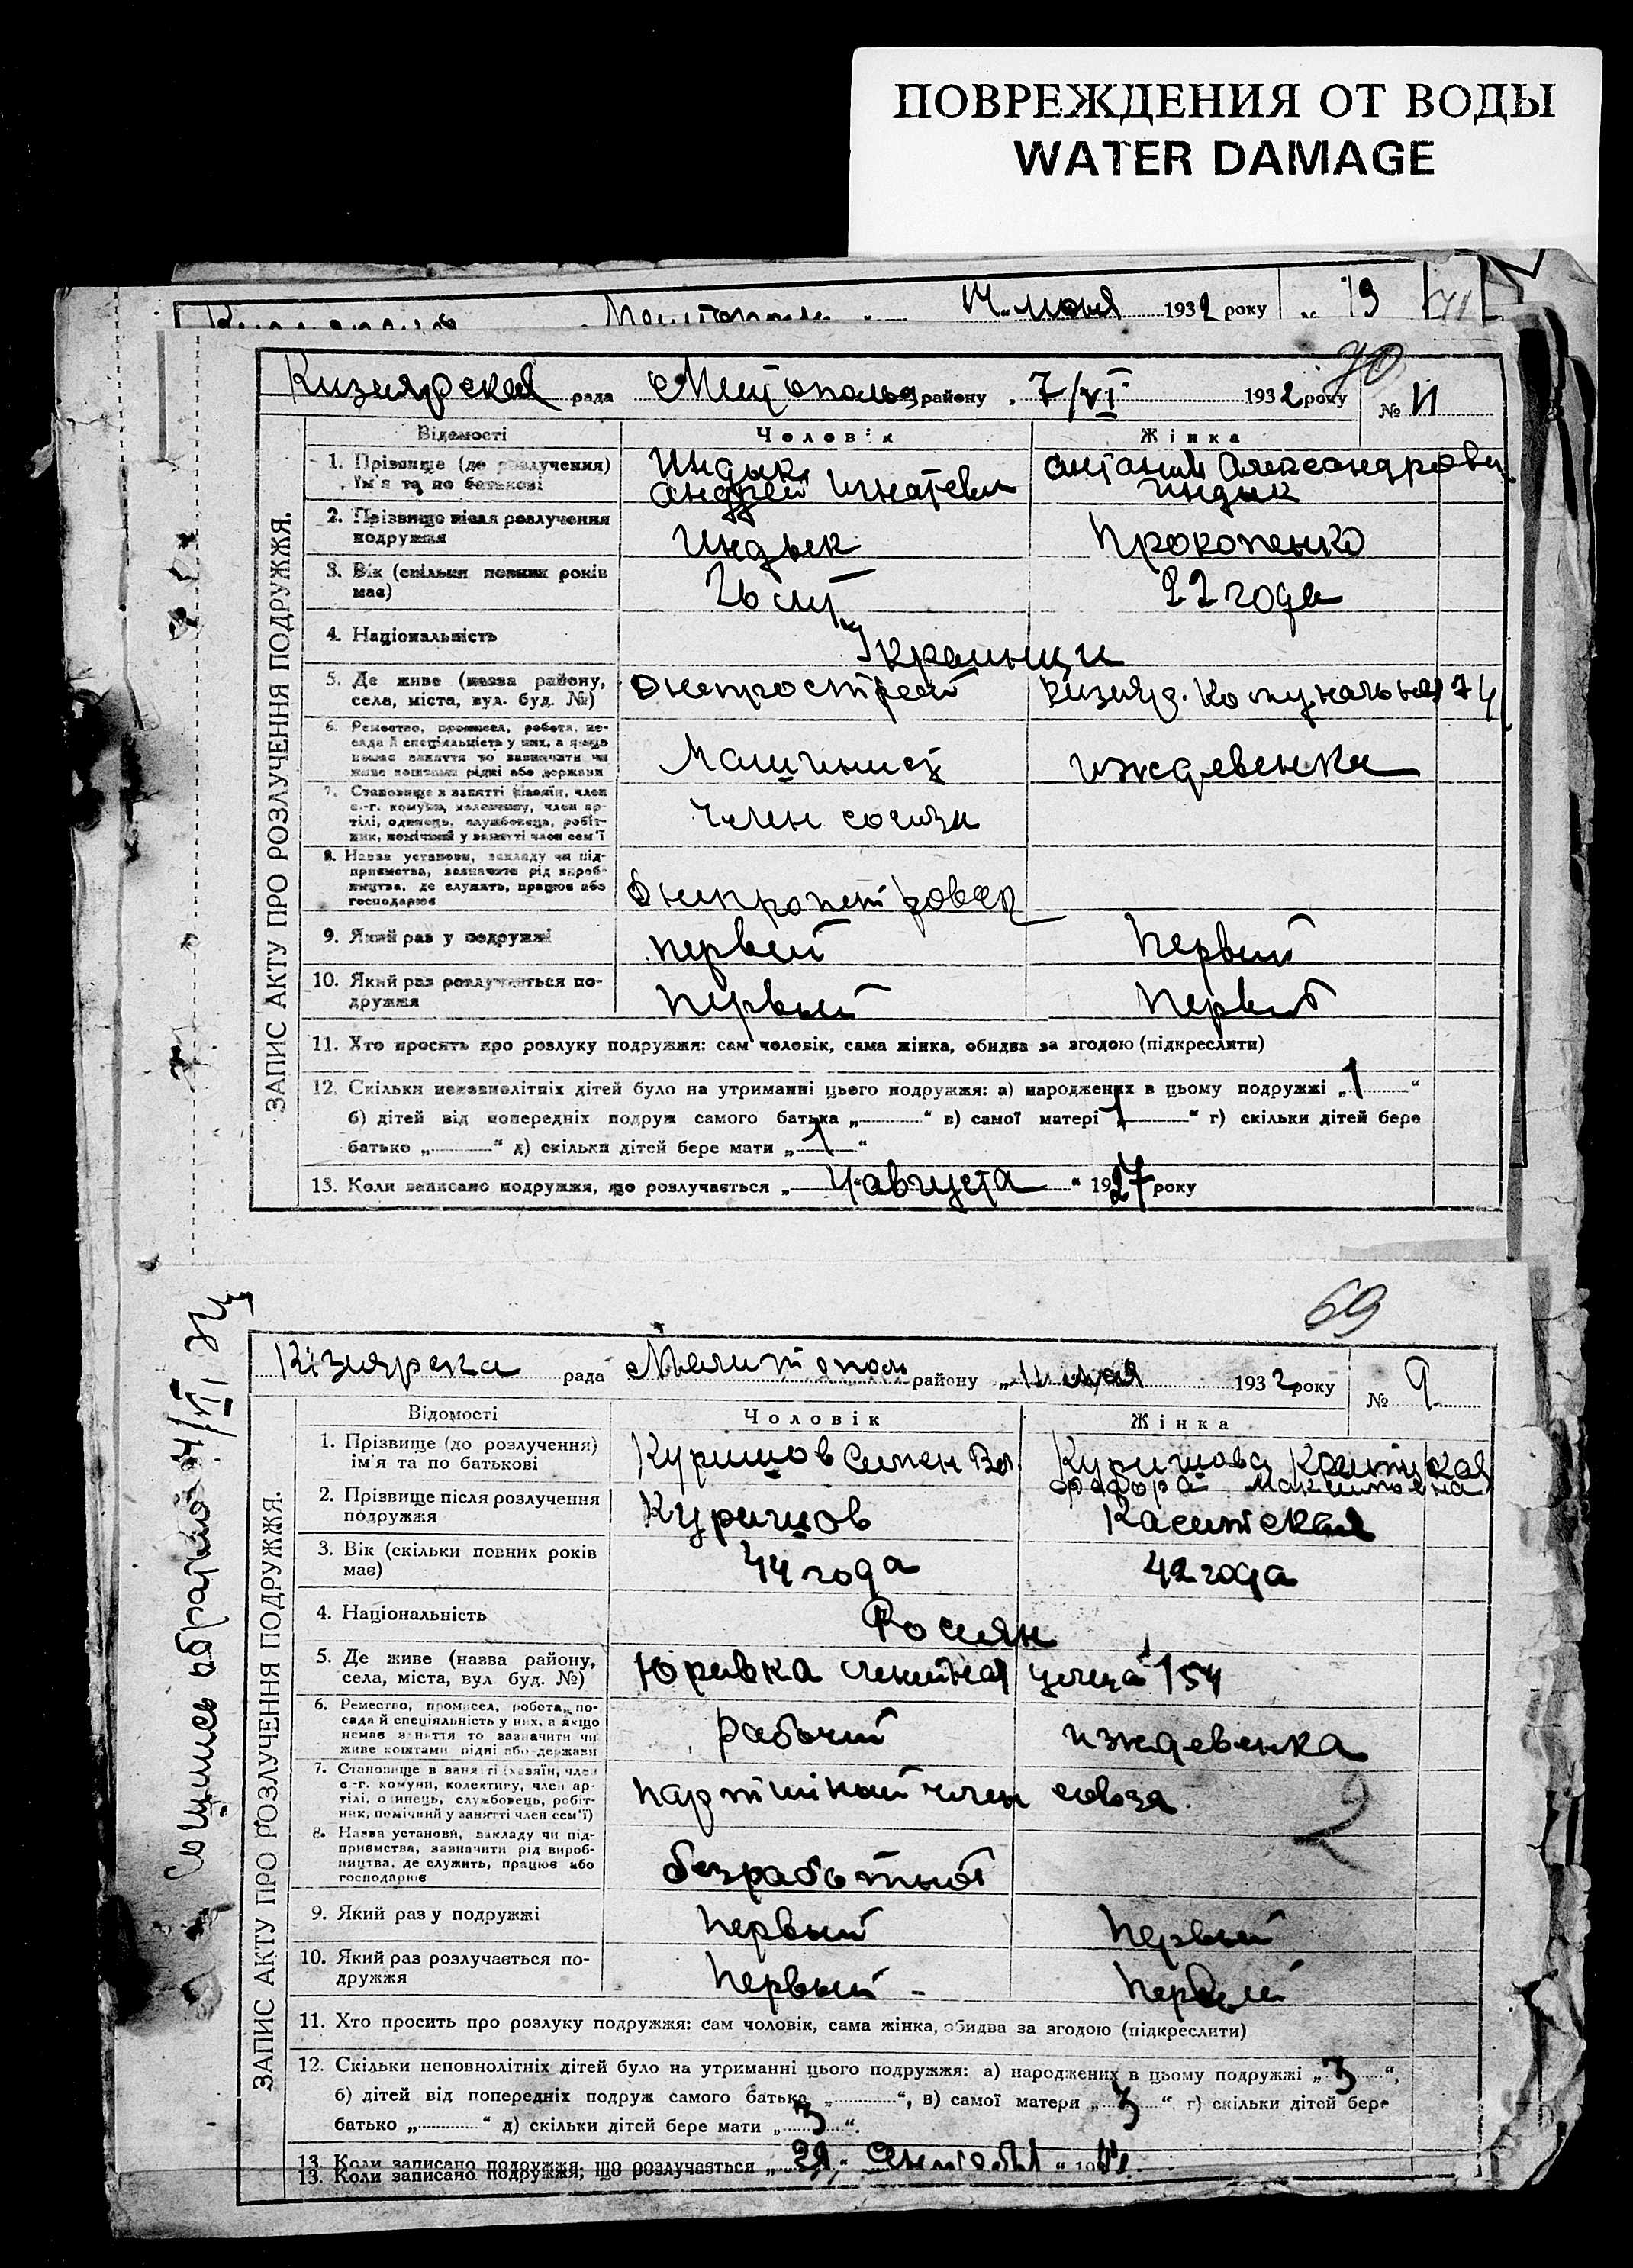 ПОВРЕЖДЕНИЯ ОТ ВОДЫ
WATER DAMAGE
июня 1932 року № 13
70
Кизиярская рада Мелітополь району 7/VI 1932 року № 11
ЗАПИС АКТУ ПРО РОЗЛУЧЕННЯ ПОДРУЖЖЯ.
Відомості Чоловік Жінка
1. Прізвище (до розлучення) ім'я та по батькові
Индык Андрей Игнатевич
Антонина Александровн Индык
2. Прізвище після розлучення подружжя
Индык Прокопенко
3. Вік (скільки повних років має)
26 лет 22 года
4. Національність
Украинци
5. Де живе (назва району, села, міста, вул. буд. №)
Днепрострой Кизияр. Комунальная 74
6. Ремество, промисел, робота, посада й спеціяльність у них, а якщо немає заняття то зазначити чи живе коштами рідні або держави
Машинист иждевенка
7. Становище в занятті (хазяїн, член с.-г. комуни, колективу, член артілі, одинець, службовець, робітник, помічний у занятті член сем'ї
член союза
8. Назва установи, закладу чи підприємства, зазначити рід виробництва, де служить, працює або господарює
9. Який раз у подружжі
первый Первый
10. Який раз розлучається подружжя
Первый Первый
11. Хто просить про розлуку подружжя: сам чоловік, сама жінка, обидва за згодою (підкреслити)
12. Скільки неповнолітніх дітей було на утриманні цього подружжя: а) народжених в цьому подружжі „1“
б) дітей від попередніх подруж самого батька „ “ в) самої матері „1“ г) скільки дітей бере
батько „ “ д) скільки дітей бере мати „1“
13. Коли записано подружжя, що розлучається „4 августа“ 1927 року
69
Кізиярска рада Мелитополь району „11 мая 1932 року № 9
ЗАПИС АКТУ ПРО РОЗЛУЧЕННЯ ПОДРУЖЖЯ.
Відомості Чоловік Жінка
1. Прізвище (до розлучення) ім'я та по батькові
Куришов Семен
Куришова
2. Прізвище після розлучення подружжя
Куришов
3. Вік (скільки повних років має)
44 года 42 года
4. Національність
Росиян
5. Де живе (назва району, села, міста, вул буд. №)
Юревка улица 154
6. Ремество, промисел, робота, посада й спеціяльність у них, а якщо немає заняття то зазначити чи живе коштами рідні або держави
рабочий иждевенка
7. Становище в занятті (хазяїн, член с.-г. комуни, колективу, член артілі, одинець, службовець, робітник, помічний у занятті член сем'ї)
член союза
2
8. Назва установи, закладу чи підприємства, зазначити рід виробництва, де служить, працює або господарює
безработный
9. Який раз у подружжі
Первый Первый
10. Який раз розлучається подружжя
Первый Первый
11. Хто просить про розлуку подружжя: сам чоловік, сама жінка, обидва за згодою (підкреслити)
12. Скільки неповнолітніх дітей було на утриманні цього подружжя: а) народжених в цьому подружжі „3“,
б) дітей від попередніх подруж самого батька „ “, в) самої матери „3“ г) скільки дітей бере
батько „ “ д) скільки дітей бере мати „3“.
13. Коли записано подружжя, що розлучається
13. Коли записано подружжя, що розлучається
Сошлись обратно